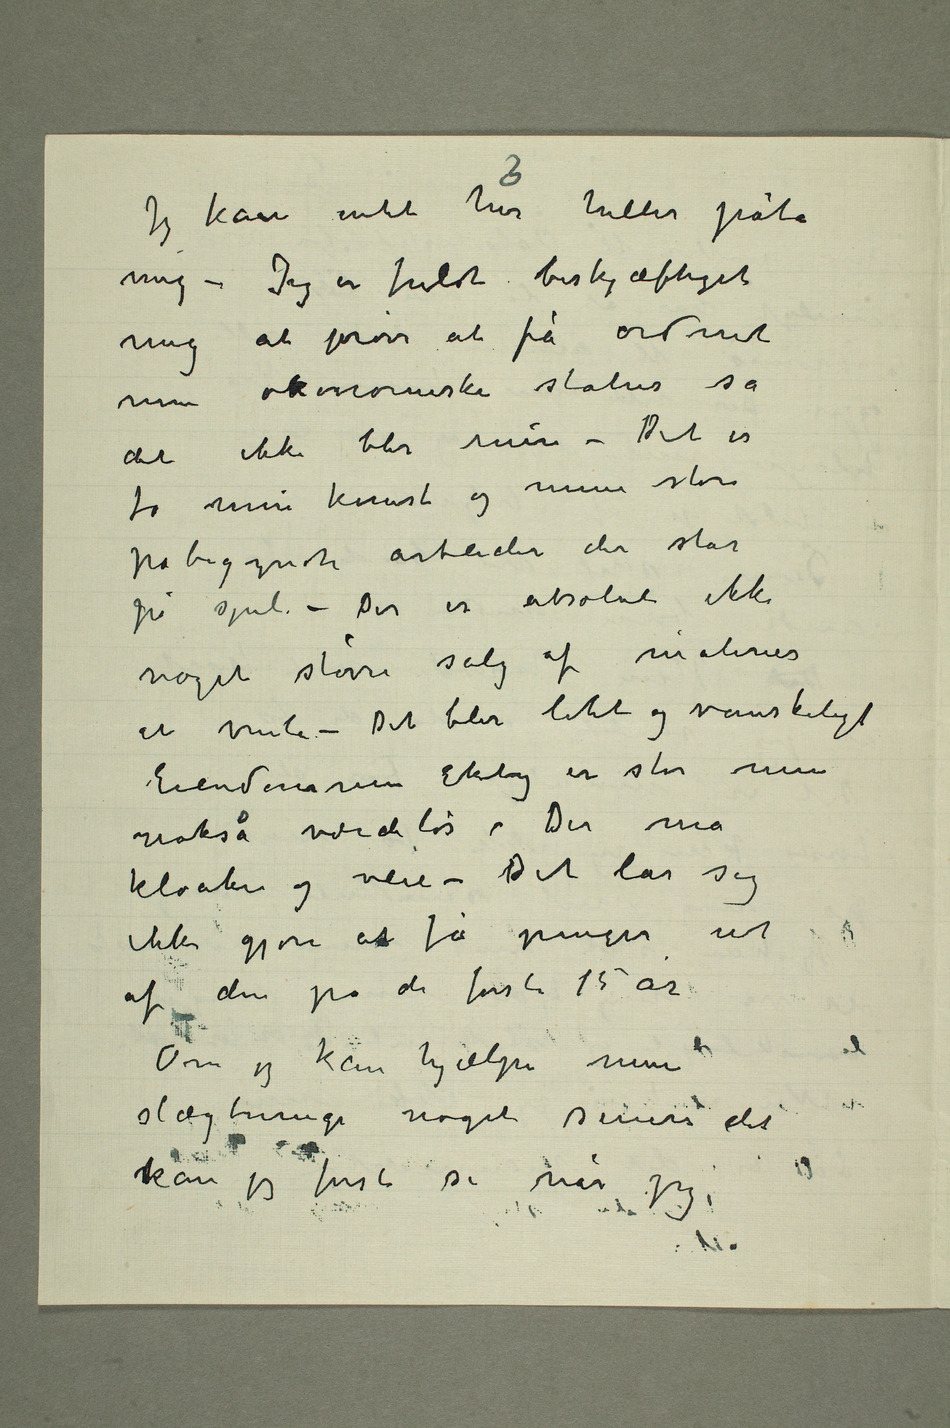 3
Jeg kan intet her heller påta
mig – Jeg er fuldt beskjæftiget
mig at prøve at få ordnet
min økonomiske status så
det ikke blir ruin – Det er
jo min kunst og mine store
påbegynte arbeider der står
på spil. – Der er absolut ikke
noget større salg af malerier
at vente – Det blir litet og vanskeligt
Eiendommen Ekely er stor men
nokså værdiløs – Der må
kloaker og veie – Det lar sig
ikke gjøre at få penger ut
af den på de første 15 år
Om jeg kan hjælpe mine
slægtninge noget senere det
kan jeg først se når jeg